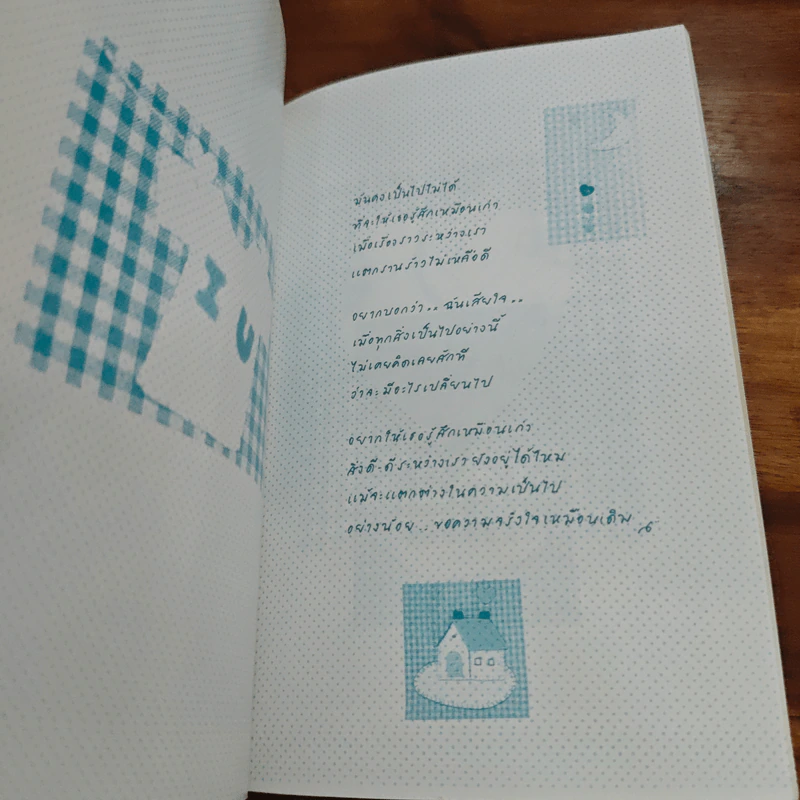 I
U
มันคงเป็นไปไม่ได้
ที่จะให้เธอรู้สึกเหมือนเก่า
เมื่อเรื่องราวระหว่างเรา
แตกร้านร้าวไม่เหลือดี
อยากบอกว่า.. ฉันเสียใจ..
เมื่อทุกสิ่งเป็นไปอย่างนี้
ไม่เคยคิดเลยสักที
ว่าจะมีอะไรเปลี่ยนไป
อยากให้เธอรู้สึกเหมือนเก่า
สิ่งดี-ดีระหว่างเรายังอยู่ได้ไหม
แม้จะแตกต่างในความเป็นไป
อย่างน้อย...ขอความจริงใจเหมือนเดิม